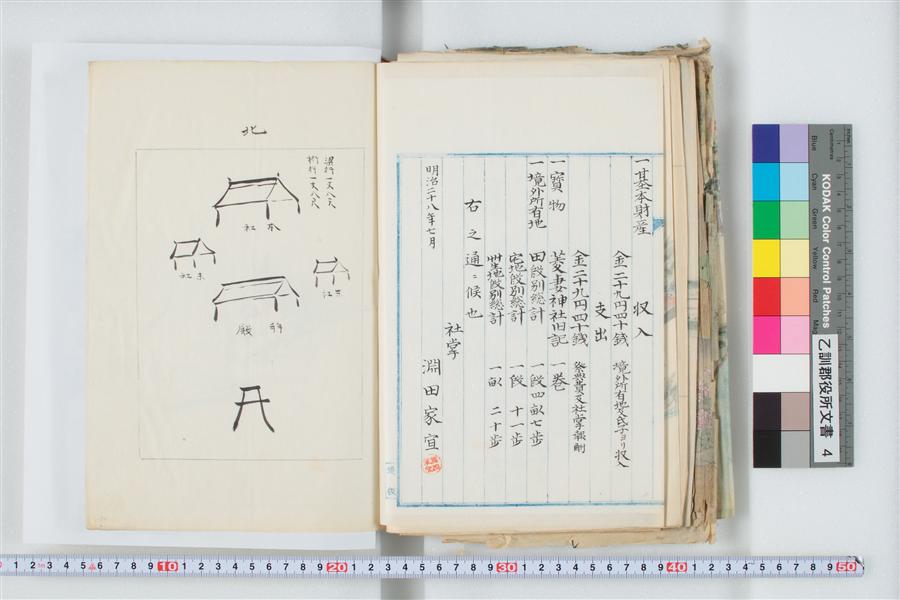 一基本財産
収入
金二十九円四十銭 境外所有地及氏子ヨリ収入
支出
金二十九円四十銭 祭典費及社掌報酬
一寳物 菱妻神社旧記 一巻
一境外所有地 田段別総計 一段四畝七歩
宅地段別総計 一段 十一歩
段別総計 一畝 二十歩
右之通ニ候也
社掌
明治二十八年七月 淵田家宜
北
梁行一丈八尺
桁行一丈八尺
本社
末社
末社
拝殿
KODAK Color Control Patches
Blue
Cyan
Green
Yellow
Red
Mag
Centimetres
乙訓郡役所文書 4
1 2 3 4 5 6 7 8 9 10 1 2 3 4 5 6 7 8 9 20 1 2 3 4 5 6 7 8 9 30 1 2 3 4 5 6 7 8 9 40 1 2 3 4 5 6 7 8 9 50